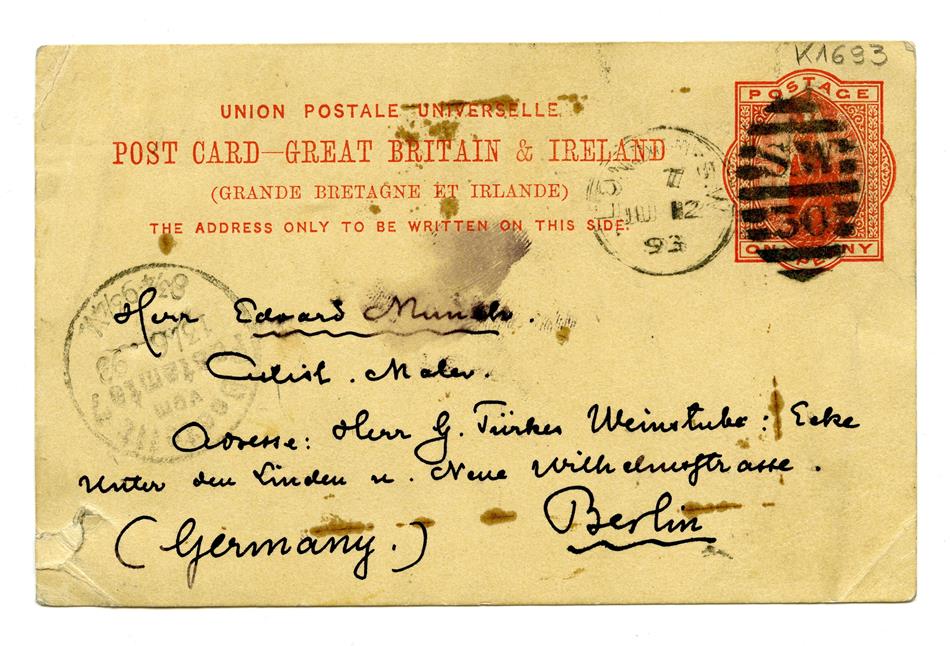 K1693
POSTAGE
UNION POSTALE UNIVERSELLE
POST CARD—GREAT BRITAIN & IRELAND
(GRANDE BRETAGNE ET IRLANDE)
THE ADDRESS ONLY TO BE WRITTEN ON THIS SIDE.
12
93
30
ONE PENNY
Herr Edvard Munch.
Maler.
Adresse: Herr G. Türkes Weinstube: Ecke
Unter den Linden u. Neue Wilhelmstrasse.
Berlin
(Germany.)